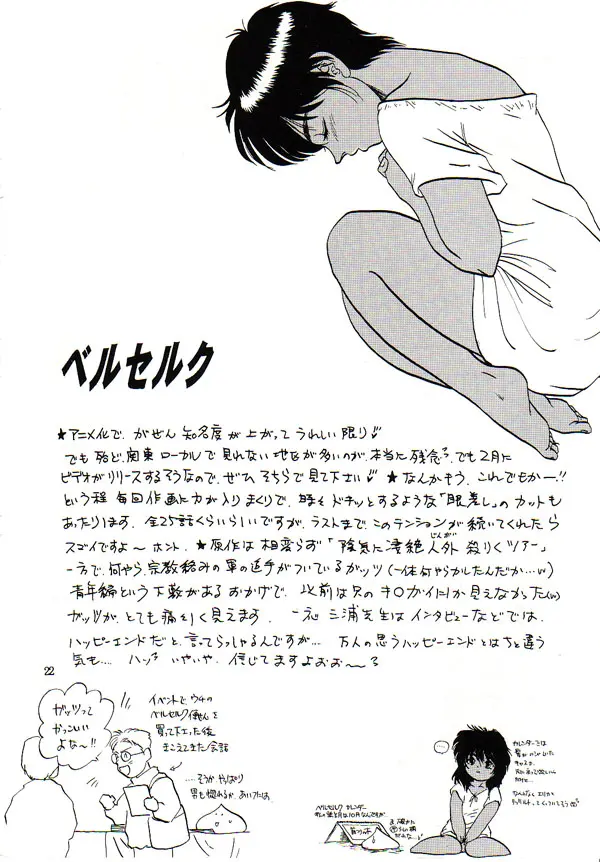 ベルセルク
★アニメ化で、がぜん知名度が上がってうれしい限り♡
でも殆ど、関東ローカルで見れない地区が多いのが、本当に残念。でも2月に
ビデオがリリースするそうなので、ぜひそちらで見て下さい♡ ★なんかもう、これでもかー!!
という程毎回作画に力が入りまくりで、時々ドキッとするような「眼差し」のカットも
あったりします。全25話くらいらしいですが、ラストまで、このテンションが続いてくれたら
スゴイですよ〜ホント。★原作は相変らず「陰気に凄絶人外殺りくツアー」
じんがい
一方で、何やら宗教絡みの軍の追手がついているガッツ(一体何やらかしたんだか…)
青年編という下敷があるおかげで、以前は只のキ○ガイにしか見えなかった
ガッツが、とても痛々しく見えます。一応三浦先生はインタビューなどでは、
ハッピーエンドだと、言ってらっしゃるんですが… 万人の思うハッピーエンドとはちと違う
気も…. ハッ いやいや、信じてますよおお〜
22
ガッツって
かっこいい
よな〜!!
イベントで ウチの
ベルセルク便せん
を
買って下さった後
きこえてきた会話
…そうか やっぱり
男も惚れるか、あいつは。
…
ベルセルク カレンダー
カレンダーでは